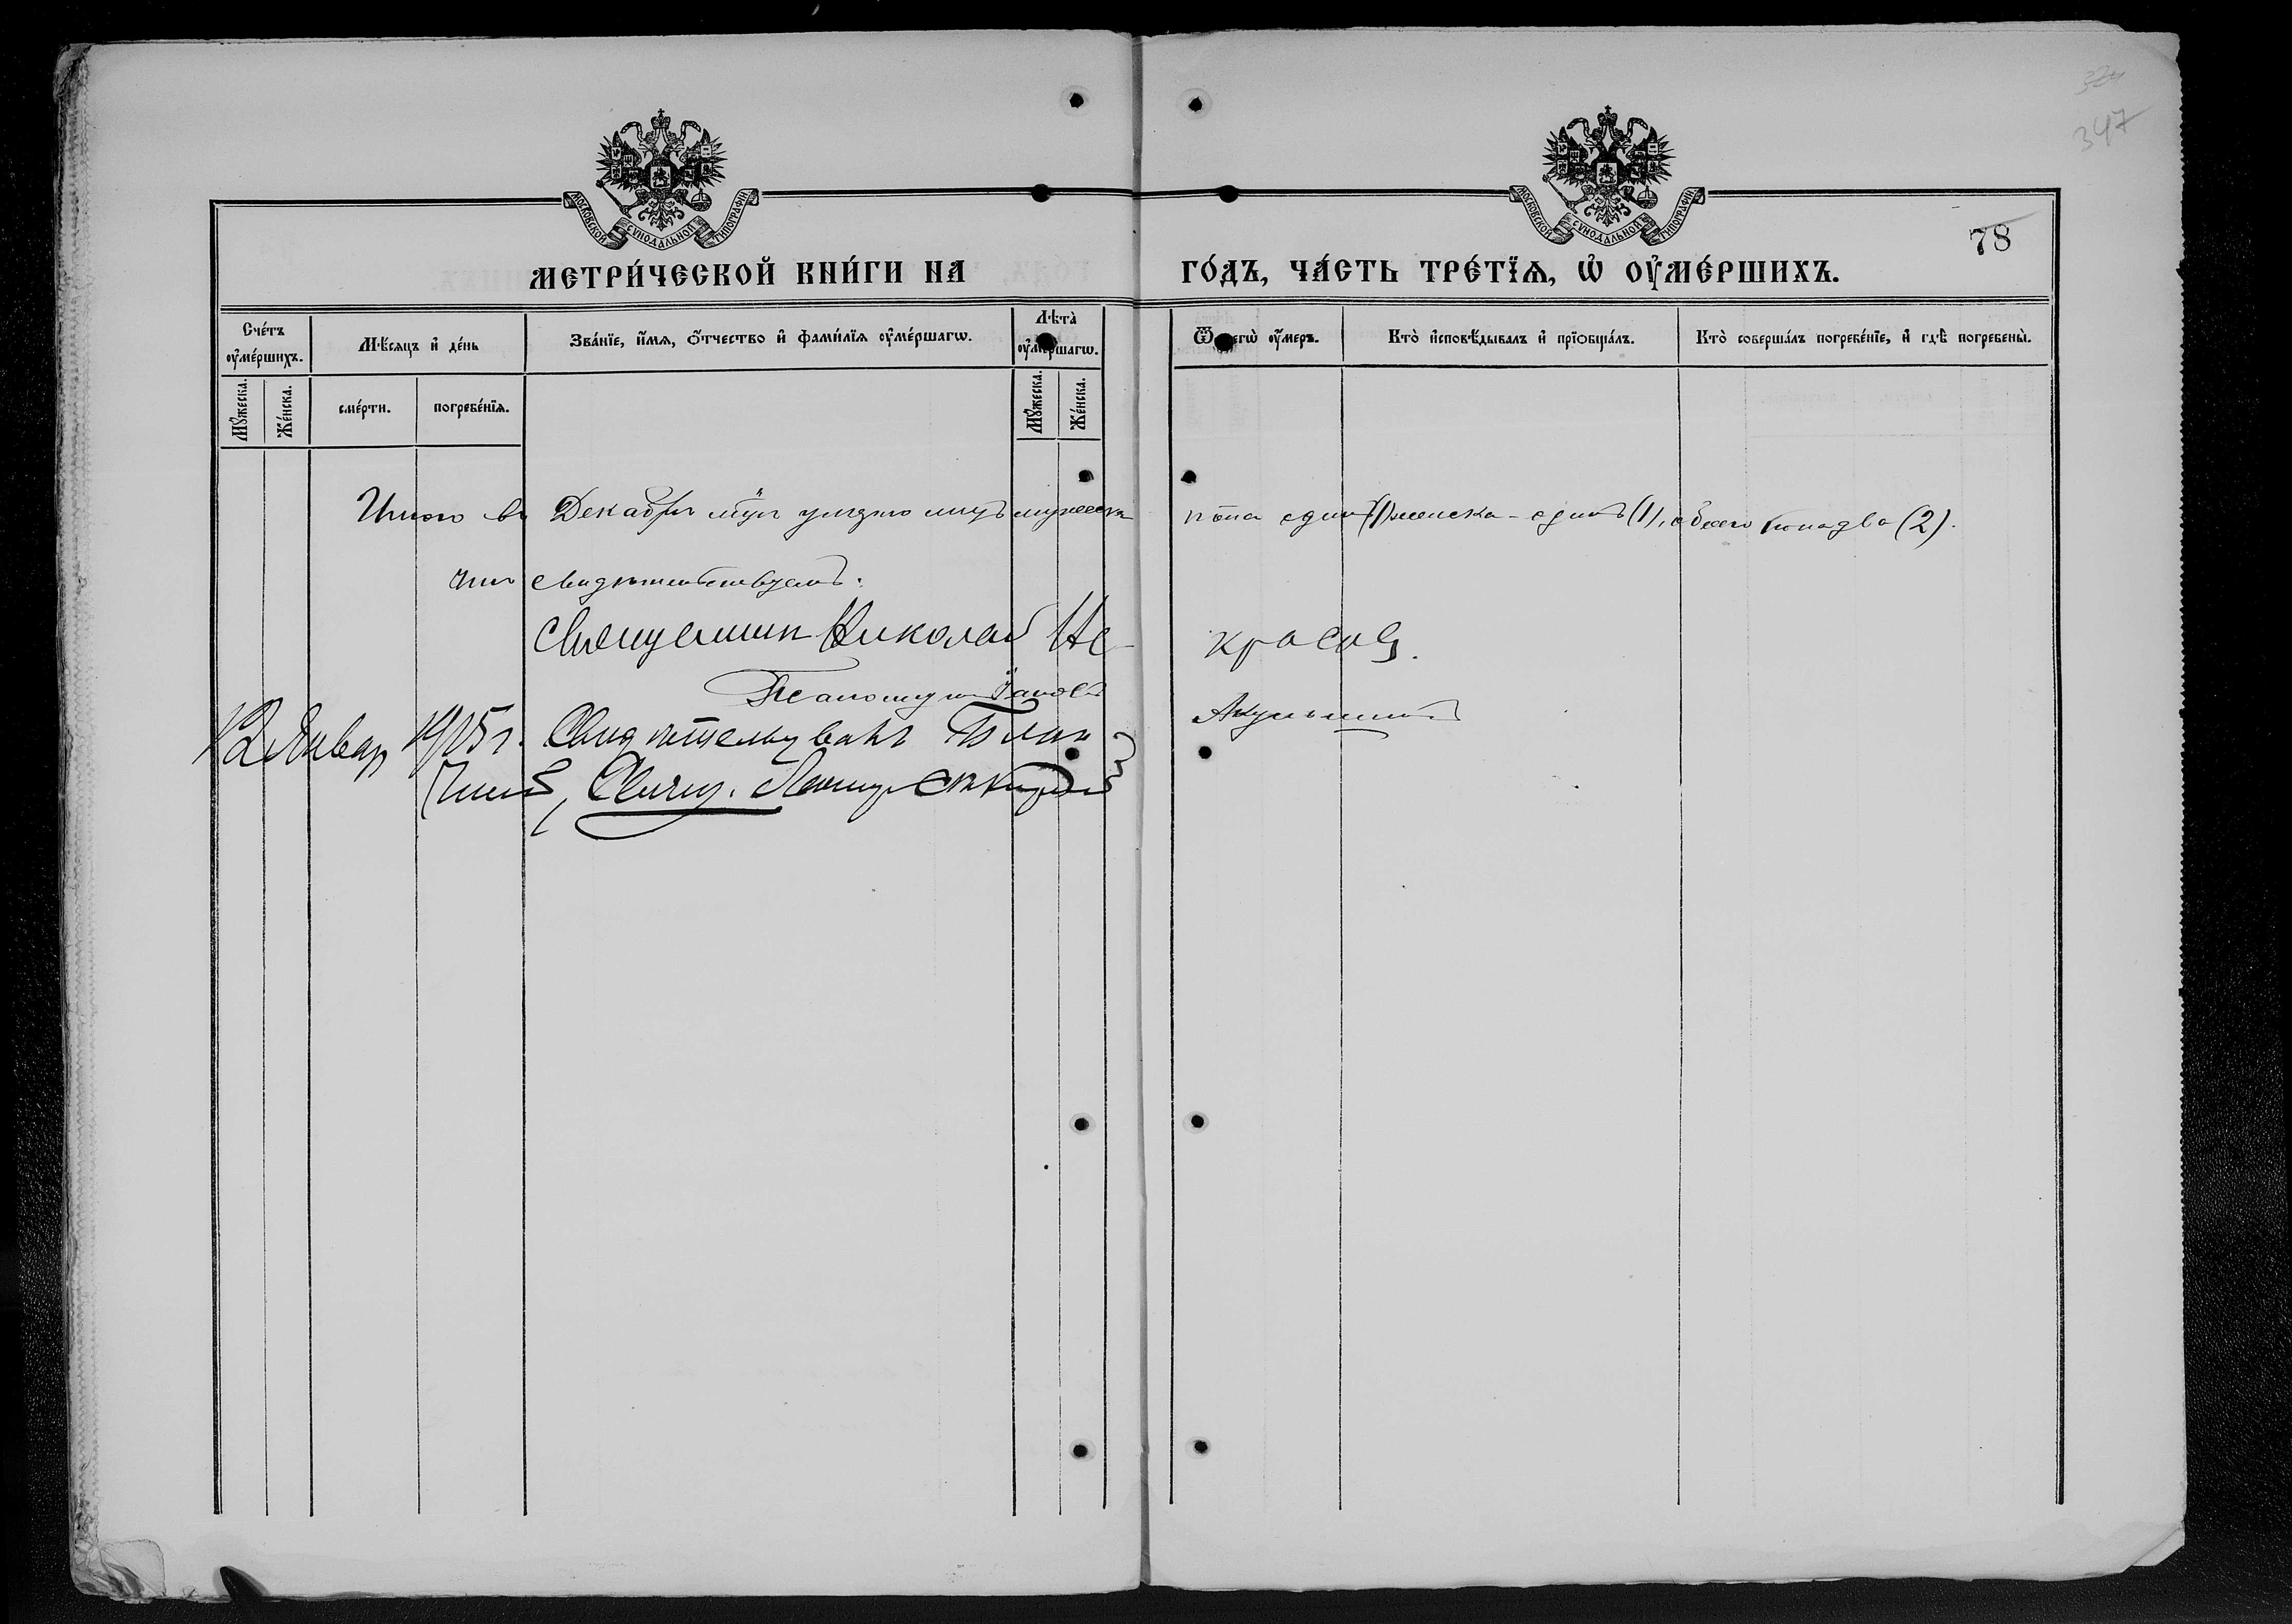 324
347
МОСКОВСКОЙ СѴНОДАЛЬНОЙ ТИПОГРАФІИ
МОСКОВСКОЙ СѴНОДАЛЬНОЙ ТИПОГРАФІИ
78
МЕТРИ́ЧЕСКОЙ КНИ́ГИ НА ГО́ДЪ, ЧА́СТЬ ТРЕ́ТЇѦ, Ѡ҆ ОУ҆МЕ́РШИХЪ.
Сче́тъ оу҆ме́ршихъ.
Мѣ́сяцъ и҆ де́нь
Зва́нїе, и҆́мѧ, ѻ҆́тчество и҆ фами́лїѧ оу҆ме́ршагѡ.
Лѣ́та̀ оу҆ме́ршагѡ.
Ѿ чегѡ̀ оу҆́меръ.
Кто̀ и҆сповѣ́дывалъ и҆ прїѻбща́лъ.
Кто̀ соверша́лъ погребе́нїе, и҆ гдѣ̀ погребены̀.
Мꙋ́жеска.
Же́нска.
сме́рти.
погребе́нїѧ.
Мꙋ́жеска.
Же́нска.
Итого въ Декабрѣ умерло мужеска пола одинъ (1) женска - одинъ (1), обоего пола два (2).
свидѣтельствуемъ:
Священникъ Николай Некрасовъ.
Псаломщикъ Акулининъ
12 Январ 1905 г. Свидѣтельствовалъ Благо
чинный, Свящ.